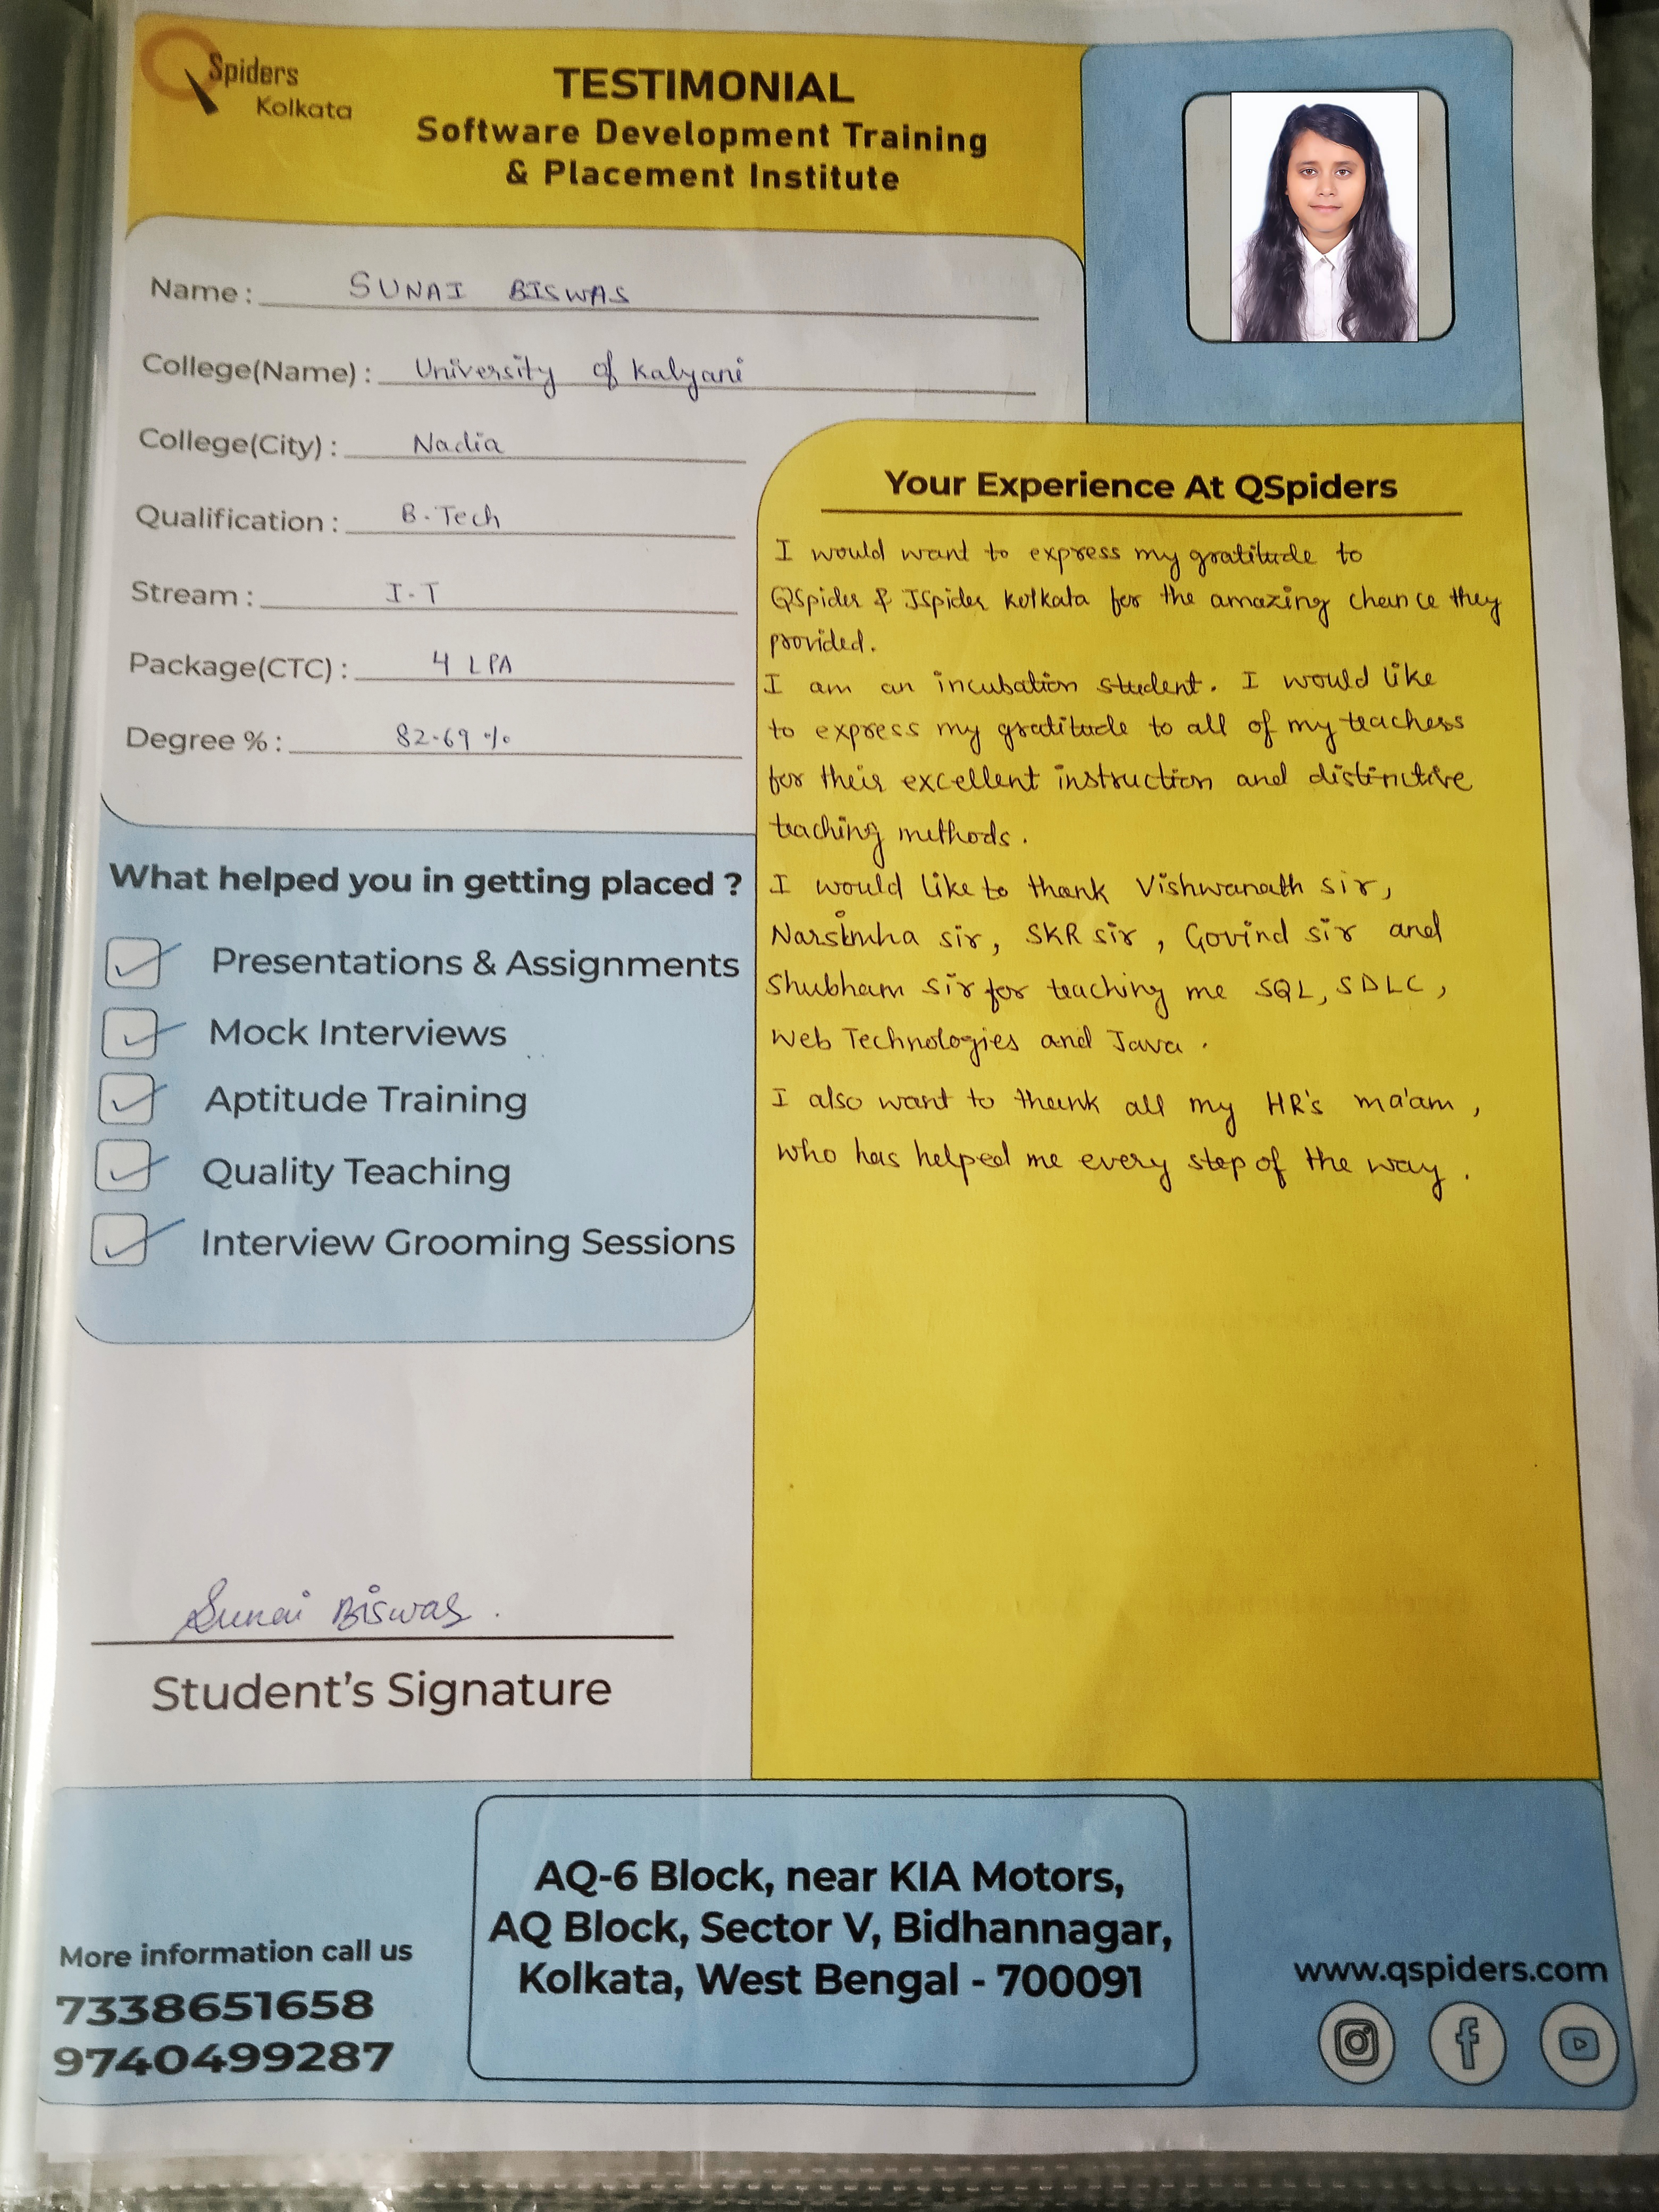 QSpiders
Kolkata
TESTIMONIAL
Software Development Training
& Placement Institute
Name : SUNAI BISWAS
College(Name) : University of Kalyani
College(City) : Nadia
Qualification : B.Tech
Stream : I.T
Package(CTC) : 4 LPA
Degree % : 82.69 %
What helped you in getting placed ?
Presentations & Assignments
Mock Interviews
Aptitude Training
Quality Teaching
Interview Grooming Sessions
Your Experience At QSpiders
I would want to express my gratitude to
QSpider & JSpider Kolkata for the amazing chance they
provided.
I am an incubation student. I would like
to express my gratitude to all of my teachers
for their excellent instruction and distinctive
teaching methods.
I would like to thank Vishwanath sir,
Narsimha sir, SKR sir, Govind sir and
Shubham sir for teaching me SQL, SDLC,
Web Technologies and Java.
I also want to thank all my HR's ma'am,
who has helped me every step of the way.
Sunai Biswas.
Student's Signature
More information call us
7338651658
9740499287
AQ-6 Block, near KIA Motors,
AQ Block, Sector V, Bidhannagar,
Kolkata, West Bengal - 700091
www.qspiders.com